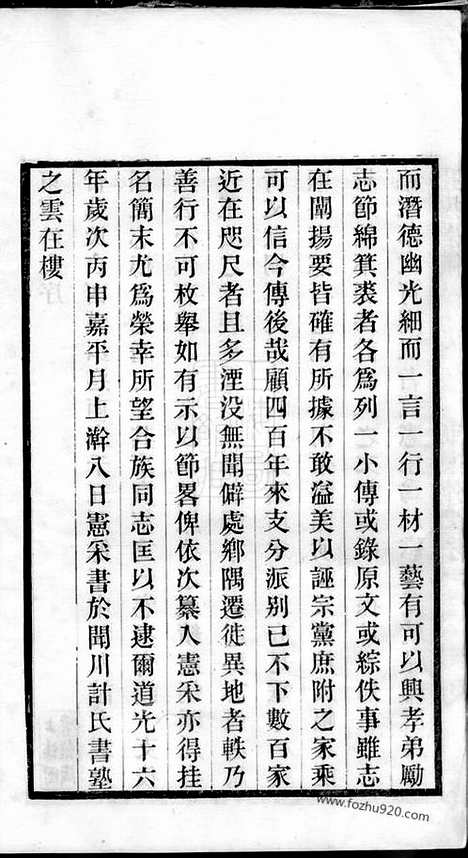 而潛德幽光細而一言一行一材一藝有可以興孝弟勵
志節綿箕裘者各爲列一小傳或錄原文或綜佚事雖志
在闡揚要皆確有所據不敢溢美以誣宗黨庶附之家乘
可以信今傳後哉顧四百年來支分派別已不下數百家
近在咫尺者且多湮没無聞僻處鄉隅遷徙異地者軼乃
善行不可枚舉如有示以節畧俾依次纂入憲采亦得挂
名簡末尤爲榮幸所望合族同志匡以不逮爾道光十六
年歲次丙申嘉平月上澣八日憲采書於聞川計氏書塾
之雲在樓
www.fozhu920.com